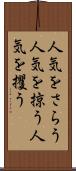 人気をさらう
人気を掠う人
気を攫う